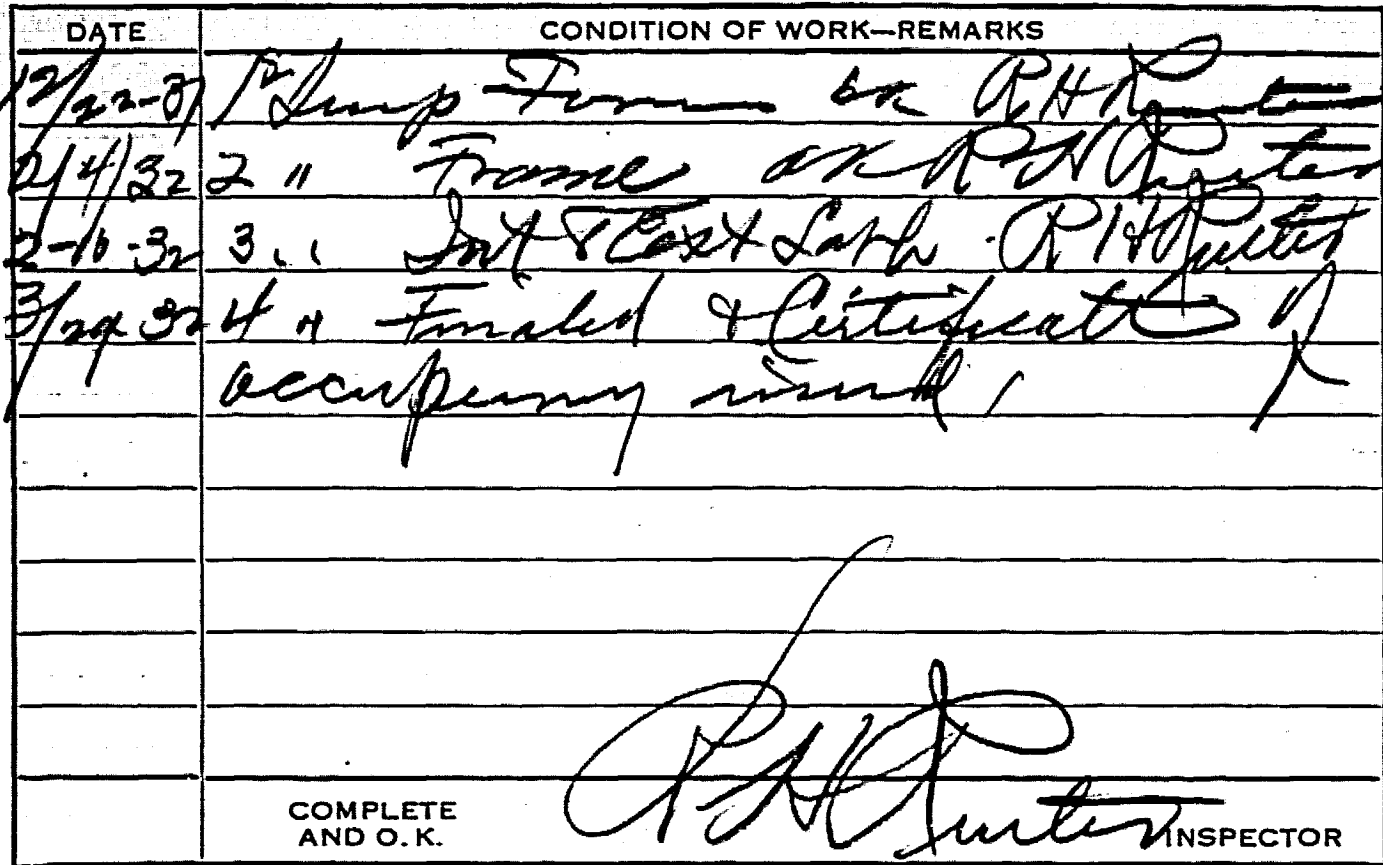 DATE CONDITION OF WORK—REMARKS
12/22-31 1st Insp Form ok R H
2/4/32 2 " Frame ok R H
2-16-32 3 " Int & Ext Lath R H
3/29 32 4 " Finaled & Certificate of
occupancy issued,
COMPLETE
AND O. K. R H INSPECTOR